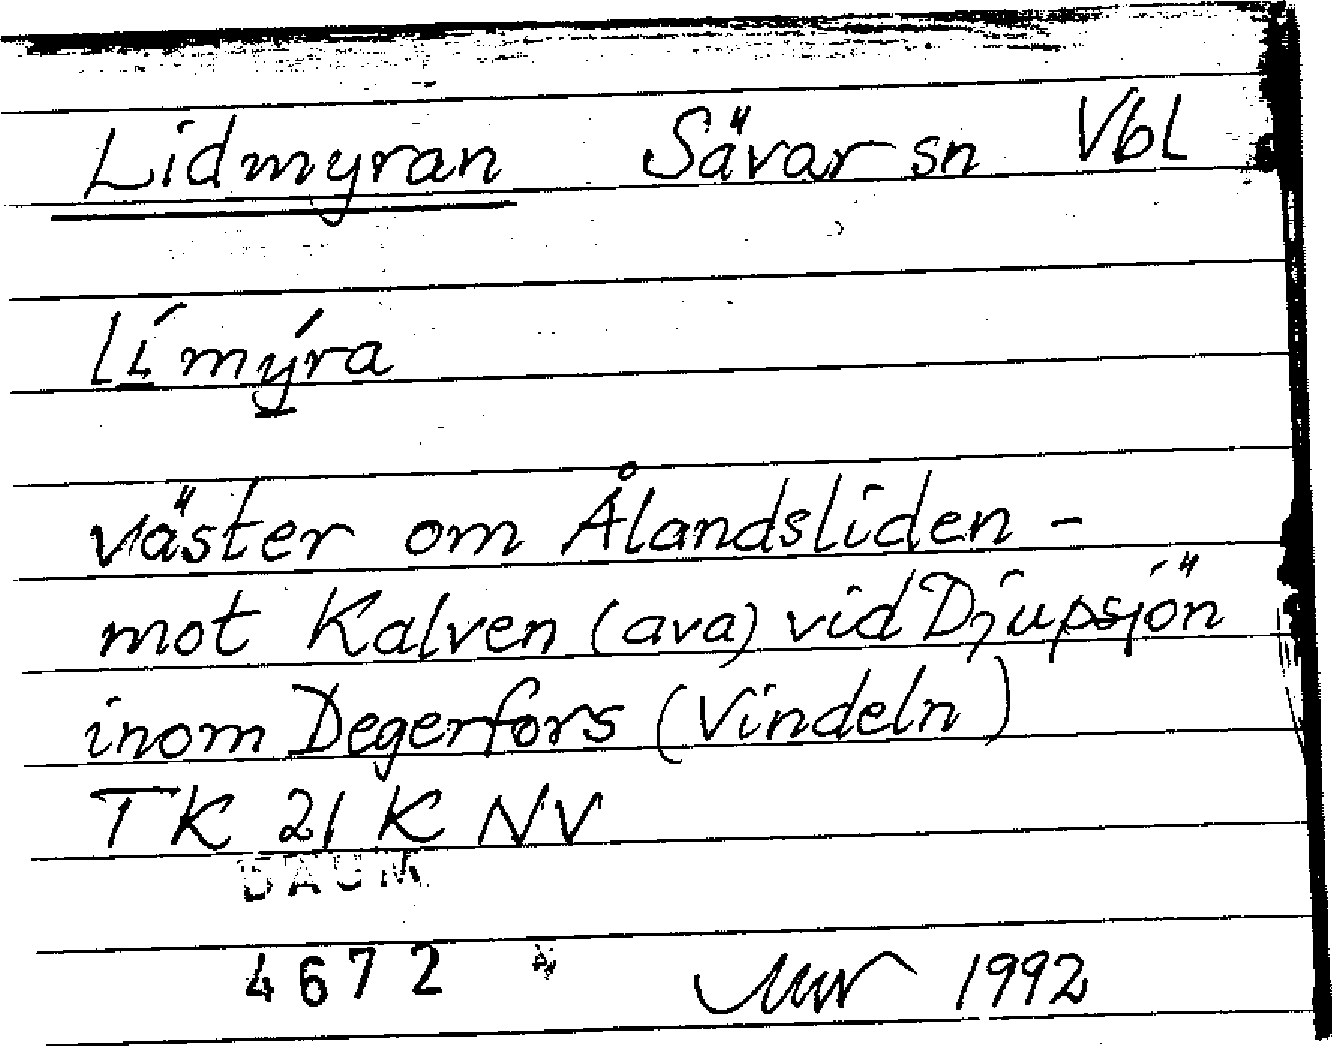 Lidmyran Sävar sn Vbl
Lí̱mý̱ra
väster om Ålandsliden -
mot Kalven (ava) vid Djupsjön
inom Degerfors (Vindeln)
TK 21 K NV
DAUM
4672 1992